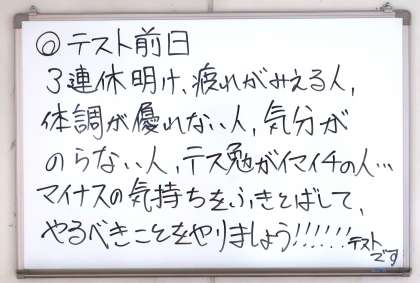 ◎テスト前日
3連休明け、疲れがみえる人,
体調が優れない人,気分が
のらない人,テス勉がイマイチの人…
マイナスの気持ちをふきとばして,
やるべきことをやりましょう!!!!!!
テスト
です